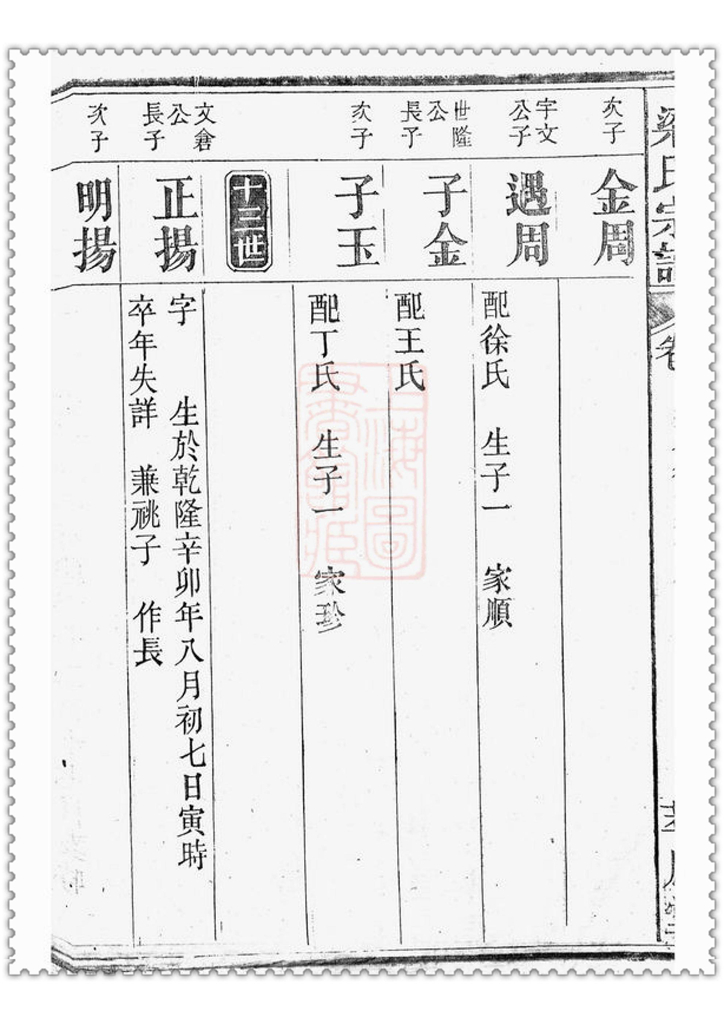 梁氏宗譜
卷
次子
金周
宇文
公子
遇周
配徐氏 生子一 家順
世隆
公
長子
子金
配王氏
次子
子玉
配丁氏 生子一 家珍
十三世
文倉
公
長子
正揚
字 生於乾隆辛卯年八月初七日寅時
卒年失詳 兼祧子 作長
次子
明揚
上海圖
書館藏